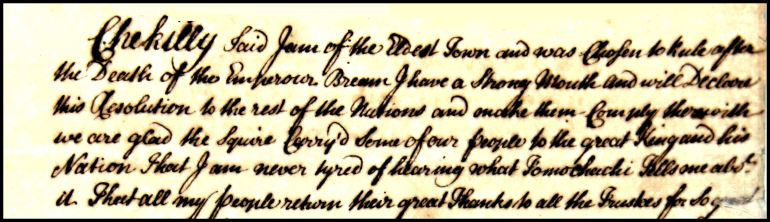 Chekilly Said I am of the Eldest Town and was Chosen to Rule after
the Death of the Emperour Bream I have a Strong Mouth and will Declare
this Resolution to the rest of the Nations and make them Comply therewith
we are glad the Squire Carry'd Some of our people to the great King and his
Nation that I am never tyred of hearing what Tomochachi Tells me abt.
it. That all my people return their great Thanks to all the Trustees for So